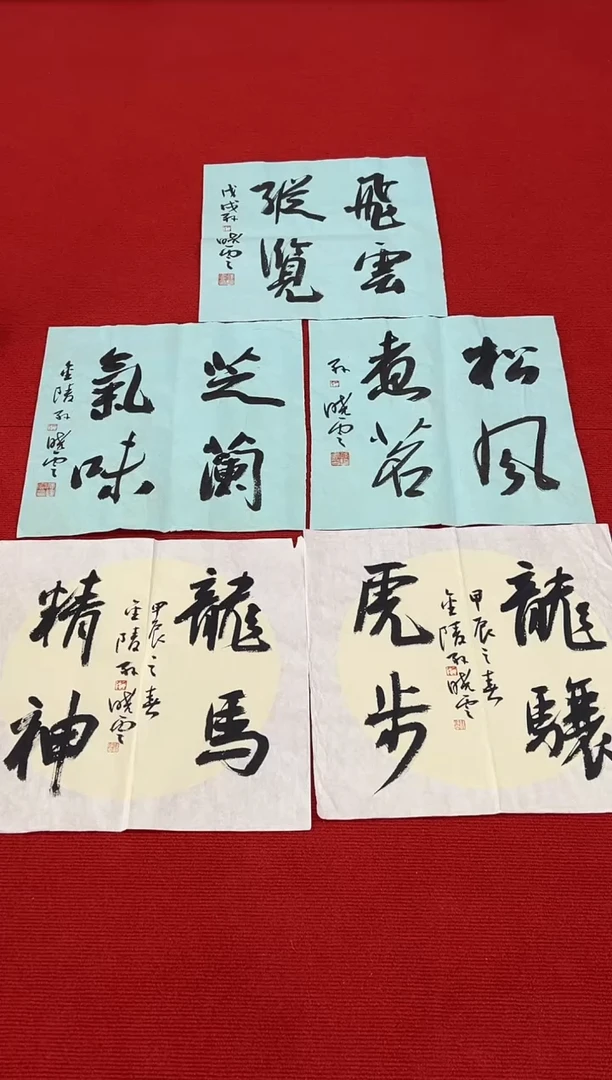 飛雲
縱覽
戊戌孫曉雲
芝蘭
氣味
金陵孫曉雲
松風
煮茗
孫曉雲
龍馬
精神
甲辰之春
金陵孫曉雲
龍驤
虎步
甲辰之春
金陵孫曉雲